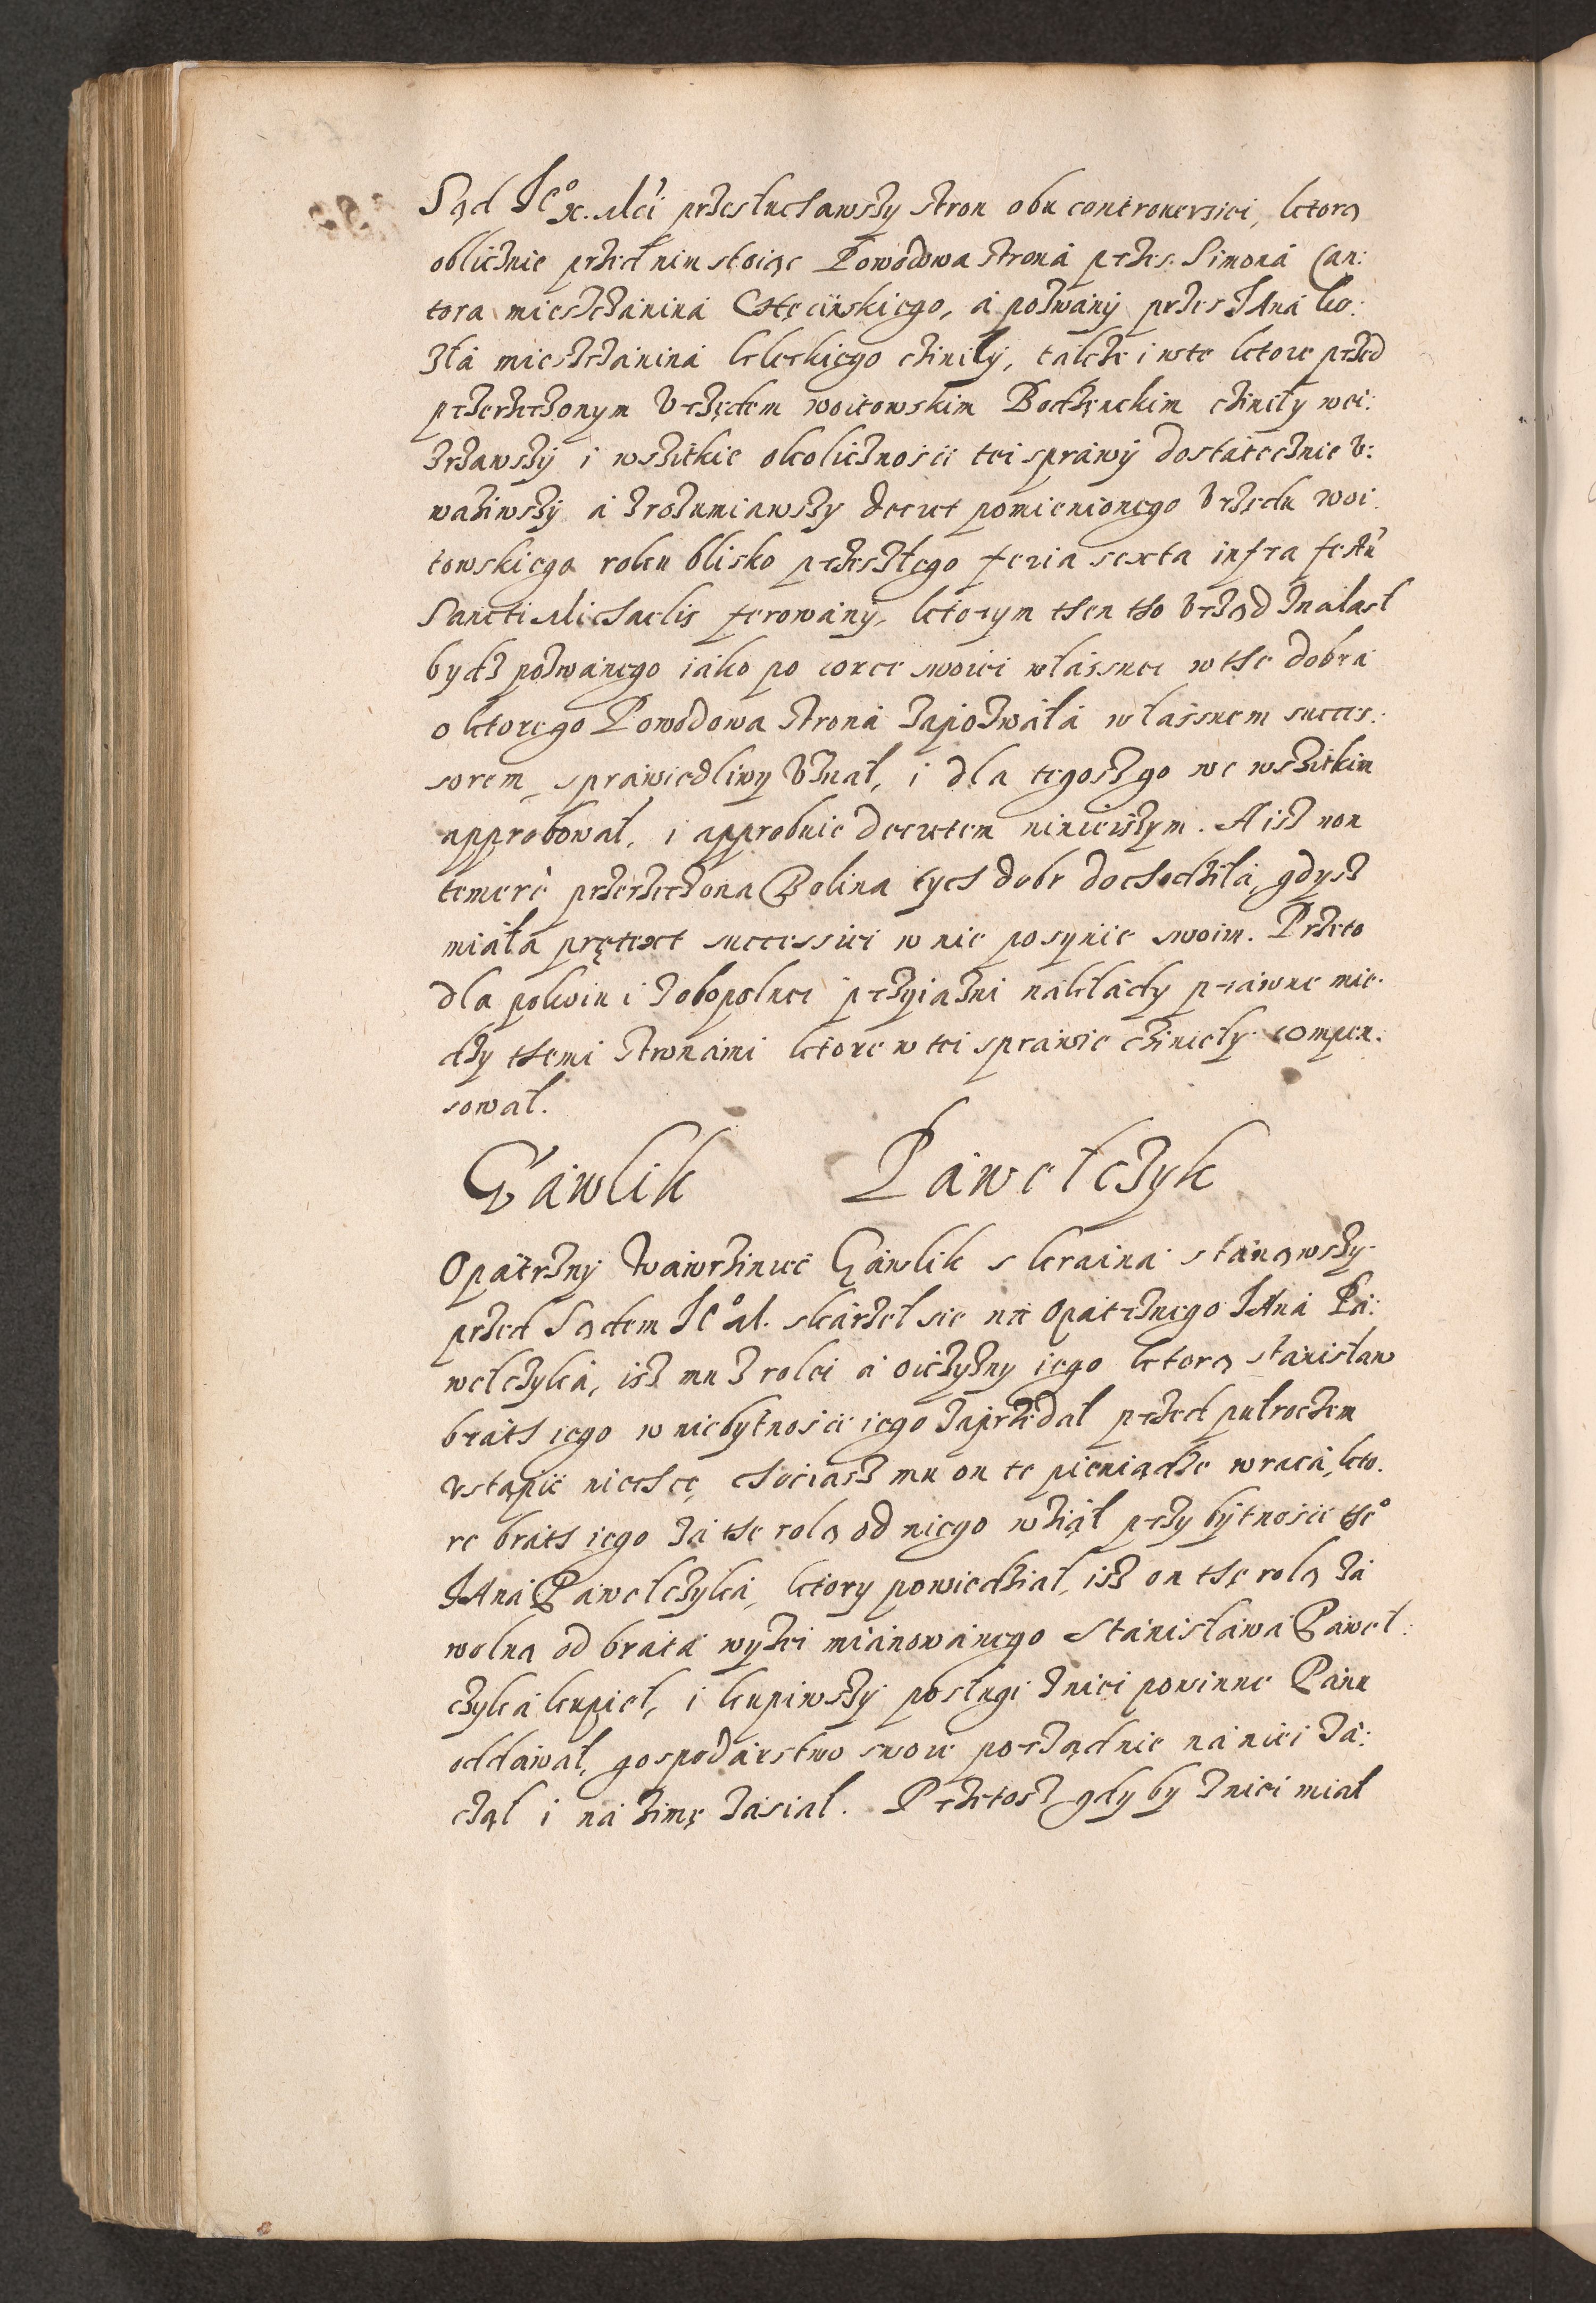 Sąd Jeº x. Mći przesłuchawszy stron obu controuersiei, ktorą
oblicznie przed nim stoiąc Powodowa strona przes Simona Can:
tora miesczanina Chęcinskiego, a pozwany przes Jana Ko:
zła mieszczanina kieleckiego czinily, takze i wte ktore przed
przerzeczonym Vrzędem woitowskim Bodzęckim czineły wei:
zrzawszy i wszitkie okolicznosci tei sprawy dostatecznie V:
waziwszy a zrozumiawszy decret pomienionego Vrzędu woi:
towskiego roku blisko przeszłego feria sexta infra festũ
Sancti Michaelis ferowany, ktorym then tho Vrząd znalasł
bydz pozwanego iako po corce swoiei własnei w the dobra
o ktorego Powodowa strona zapozwała własnem succes:
sorem, sprawiedliwy Vznał, i dla tegosz go we wszitkim
approbował, i approbuie decretem ninieiszym. A isz non
temerè przerzeczona Bolina tych dobr dochodziła, gdysz
miała prętext successiei w nie po synie swoim. Przeto
dla pokoiu i zobopolnei przyiazni nakłady prawne mie:
dzy themi stronami ktore w tei sprawie czinieły compen:
sował.
Gawlik Pawełczyk
Opatrzny Wawrziniec Gawlik s kraina stanąwszy
przed Sądem Jeº M. skarzel sie na Opatrznego Jana Pa:
wełczyka, isz mu z rolei a oiczyzny iego ktorą stanisław
brath iego w niebytnosci iego zaprzedał przed pułroczem
vstąpić niechce, chociasz mu on te pieniądze wraca, kto:
re brath iego za the rolą od niego wziął przy bytnosci theº
Jana Pawełczyka, ktory powiedział, isz on thę rolą za
wolną od brata wyzei mianowanego Stanisława Paweł:
czyka kupieł, i kupiwszy posługi z niei powinne Panu
oddawał, gospodarstwo swoie porządnie na niei za:
czął i na zimę zasiał. Przetosz gdy by z niei miał